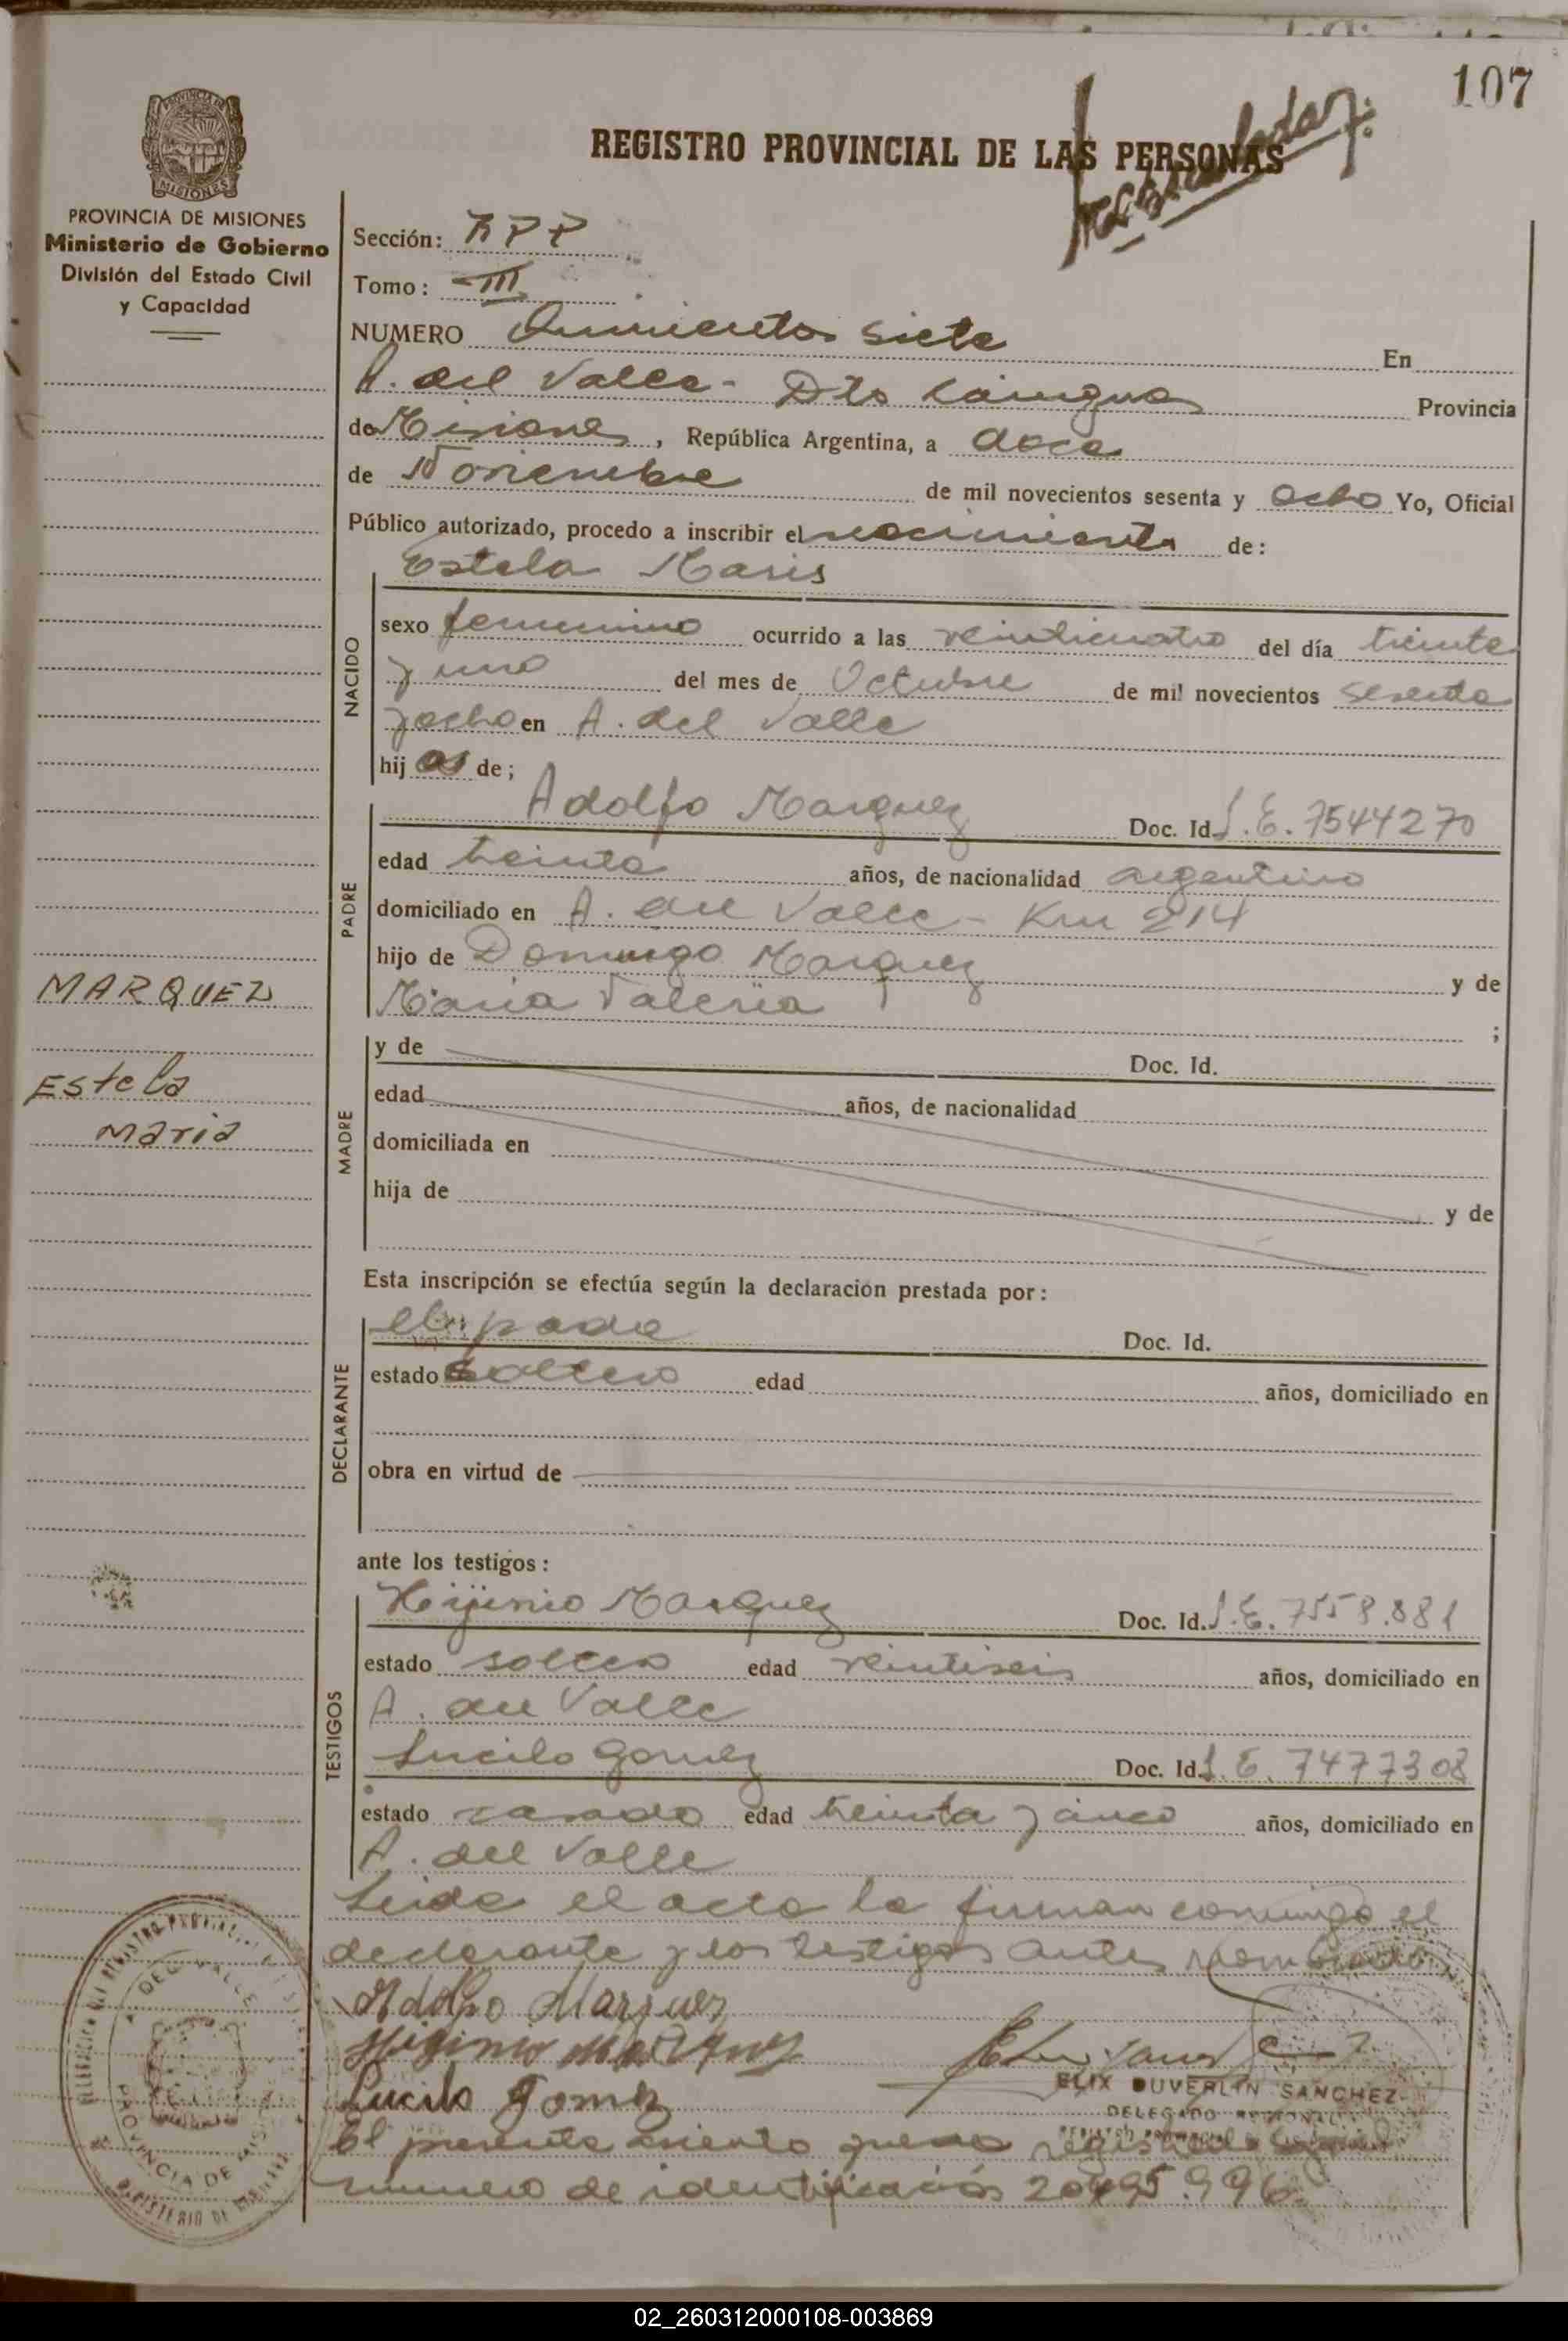 107
REGISTRO PROVINCIAL DE LAS PERSONAS
PROVINCIA DE MISIONES
Ministerio de Gobierno
División del Estado Civil
y Capacidad
Sección:
Tomo: III
NUMERO Quinientos siete En
A. del Valle - Dto Cainguas Provincia
de Misiones, República Argentina, a doce
de Noviembre de mil novecientos sesenta y ocho Yo, Oficial
Público autorizado, procedo a inscribir el nacimiento de:
Estela Maris
NACIDO
sexo femenino ocurrido a las veinticuatro del día treinta
y uno del mes de Octubre de mil novecientos sesenta
y ocho en A. del Valle
hij as de;
PADRE
Adolfo Marquez Doc. Id. L.E. 7544270
edad treinta años, de nacionalidad argentino
domiciliado en A. del Valle - Km 214
hijo de Domingo Marquez y de
Maria Valeria ;
MARQUEZ
Estela
Maria
MADRE
y de Doc. Id.
edad años, de nacionalidad
domiciliada en
hija de y de
Esta inscripción se efectúa según la declaración prestada por:
DECLARANTE
el padre Doc. Id.
estado soltero edad años, domiciliado en
obra en virtud de
ante los testigos:
TESTIGOS
Hijinio Marquez Doc. Id. L.E. 7558.881
estado soltero edad veintiseis años, domiciliado en
A. del Valle
Lucilo Gomez Doc. Id. L.E. 7477308
estado casado edad treinta y cinco años, domiciliado en
A. del Valle
Leida el acta la firman conmigo el
declarante y los testigos antes nombrados
Adolfo Marquez
Higinio Marquez
Lucilo Gomez
ELIX DUVERLIN SANCHEZ
DELEGADO REGIONAL
El presente asiento queda registrado
numero de identificación 20.495.996
A. DEL VALLE
PROVINCIA DE MISIONES
MINISTERIO DE GOBIERNO
02_260312000108-003869